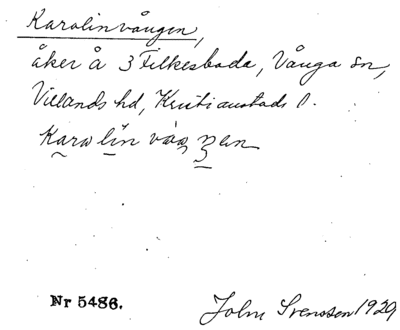 Karolinvången,
åker å 3 Filkesboda, Vånga sn,
Villands hd, Kristianstads l.
Karolin vån
Nr 5486.
John Svensson 1929